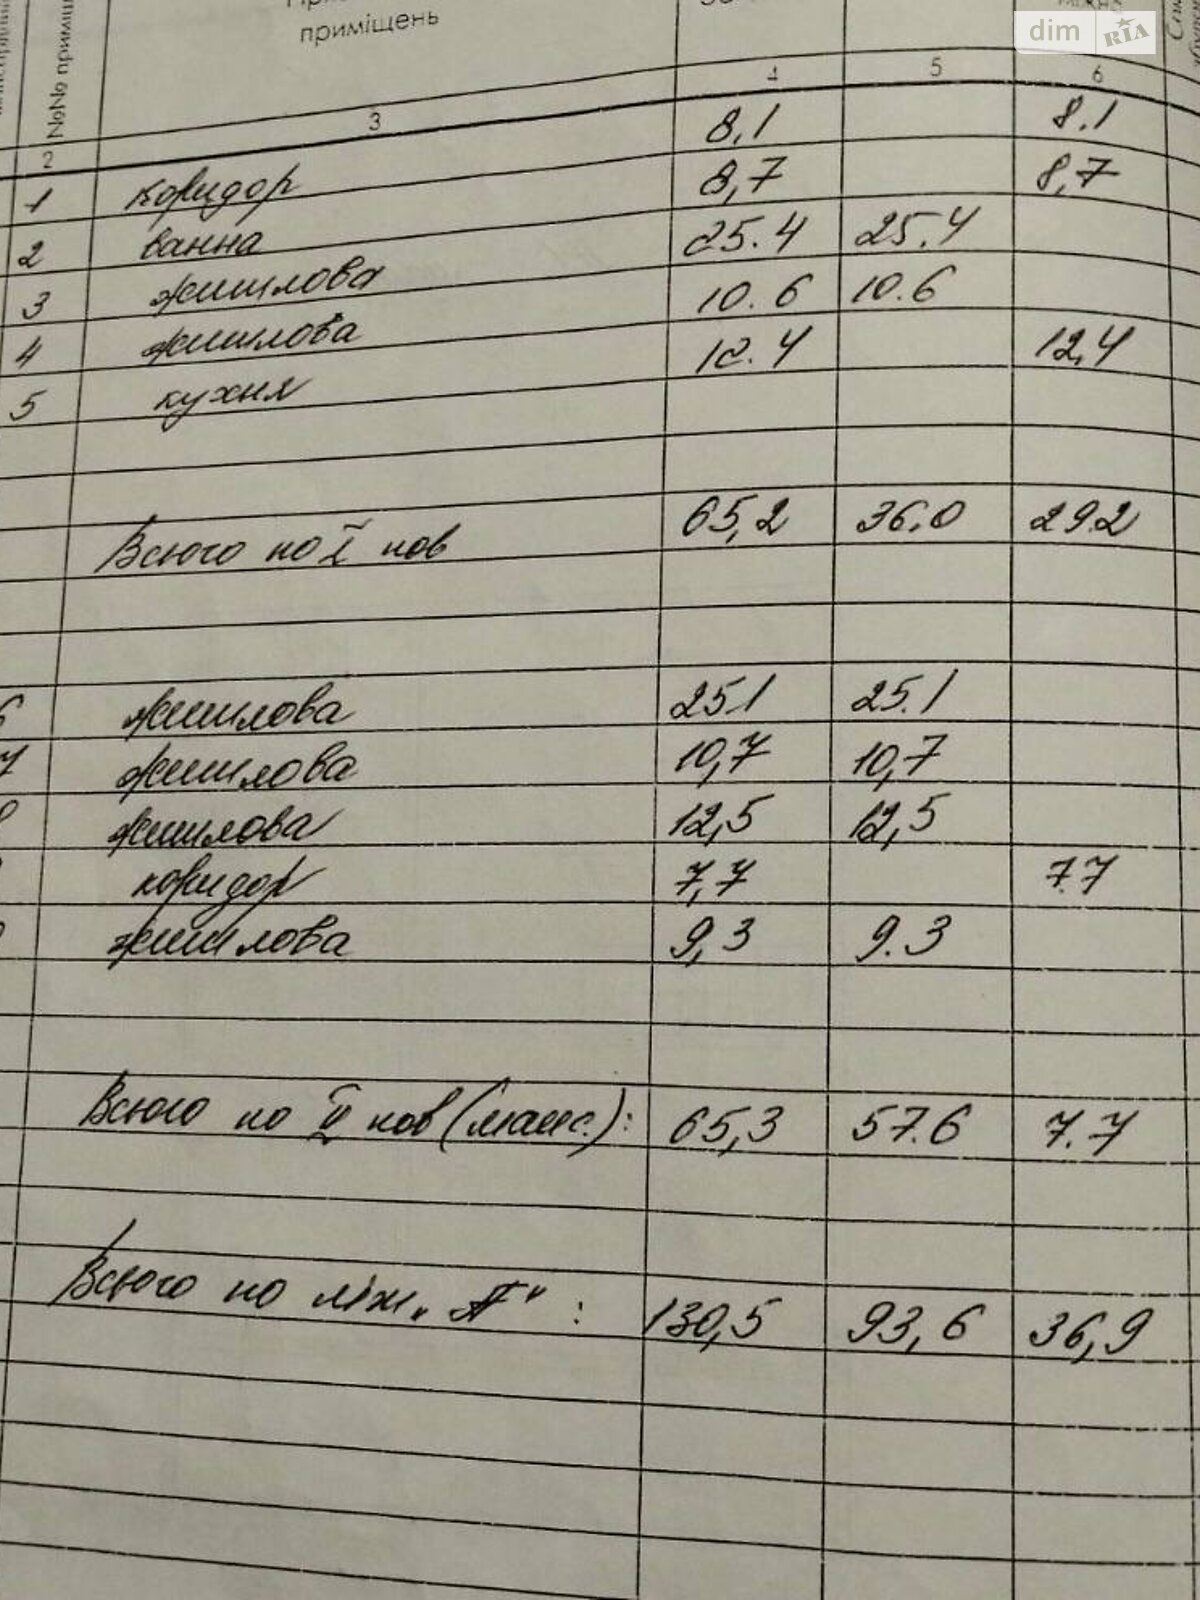 №№ приміщ
приміщень
dim RIA
2 3 4 5 6
1 коридор 8,1 8.1
2 ванна 8,7 8,7
3 житлова 25.4 25.4
4 житлова 10.6 10.6
5 кухня 12.4 12,4
Всього по І пов 65,2 36.0 29.2
6 житлова 25.1 25.1
7 житлова 10,7 10,7
житлова 12,5 12,5
коридор 7,7 7.7
житлова 9,3 9.3
Всього по ІІ пов (манс.): 65,3 57.6 7.7
Всього по літ. "А" : 130,5 93,6 36,9